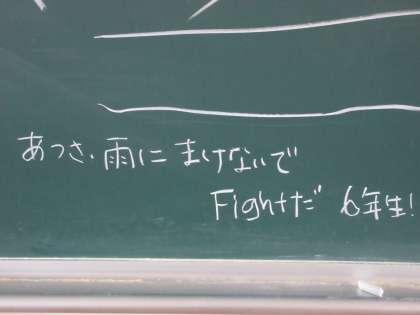 あつさ、雨にまけないで
Fightだ 6年生!